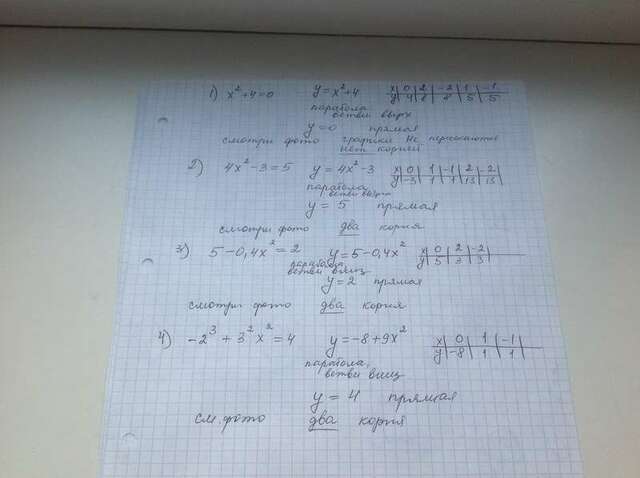 1) x² + 4 = 0 y = x² + 4 x | 0 | 2 | -2 | 1 | -1
y | 4 | 8 | 8 | 5 | 5
парабола
ветви вверх
y = 0 прямая
смотри фото графики не пересекаются
нет корней
2) 4x² - 3 = 5 y = 4x² - 3 x | 0 | 1 | -1 | 2 | -2
y | -3 | 1 | 1 | 13 | 13
парабола,
ветви вверх
y = 5 прямая
смотри фото два корня
3) 5 - 0,4x² = 2 y = 5 - 0,4x² x | 0 | 2 | -2
y | 5 | 3 | 3
парабола,
ветви вниз
y = 2 прямая
смотри фото два корня
4) -2³ + 3² x² = 4 y = -8 + 9x² x | 0 | 1 | -1
y | -8 | 1 | 1
парабола,
ветви вниз
y = 4 прямая
см. фото два корня